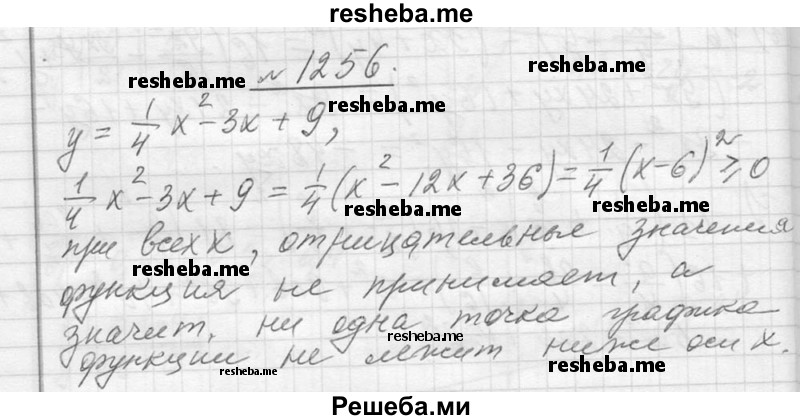 resheba.me
resheba.me № 1256. resheba.me
resheba.me
y = 1/4 x² - 3x + 9,
1/4 x² - 3x + 9 = 1/4 (x² - 12x + 36) = 1/4 (x - 6)² ⩾ 0
resheba.me resheba.me
при всех x, отрицательные значения
resheba.me resheba.me
функция не принимает, а
значит, ни одна точка графика
resheba.me
функции не лежит ниже оси x.
resheba.me resheba.me
Решеба.ми